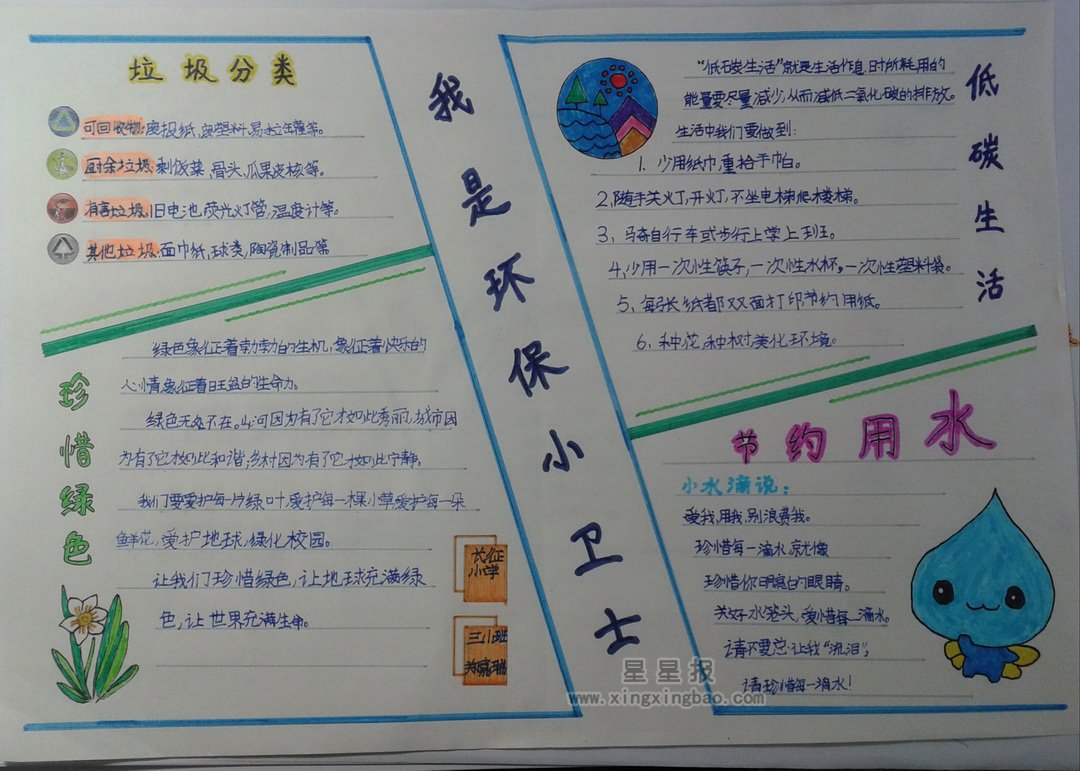 垃圾分类
可回收物:废报纸,废塑料,易拉罐等。
厨余垃圾:剩饭菜,骨头,瓜果皮核等。
有害垃圾:旧电池,荧光灯管,温度计等。
其他垃圾:面巾纸,球类,陶瓷制品等
珍惜绿色
绿色象征着勃勃的生机,象征着快乐的
心情,象征着旺盛的生命力。
绿色无处不在。山河因为有了它才如此秀丽,城市因
为有了它才如此和谐;乡村因为有了它才如此宁静。
我们要爱护每一片绿叶,爱护每一棵小草,爱护每一朵
鲜花,爱护地球,绿化校园。
让我们珍惜绿色,让地球充满绿
色,让世界充满生命。
长征
小学
三八班
我是环保小卫士
低碳生活
“低碳生活”就是生活作息时所耗用的
能量要尽量减少,从而减低二氧化碳的排放。
生活中我们要做到:
1、少用纸巾,重拾手帕。
2,随手关灯,开灯,不坐电梯爬楼梯。
3、骑自行车或步行上学上班。
4,少用一次性筷子,一次性水杯,一次性塑料袋。
5、每张纸都双面打印节约用纸。
6、种花,种树,美化环境。
节约用水
小水滴说:
爱我,用我,别浪费我。
珍惜每一滴水就像
珍惜你明亮的眼睛。
关好水笼头,爱惜每一滴水。
请不要总让我“流泪”,
请珍惜每一滴水!
星星报
www.xingxingbao.com